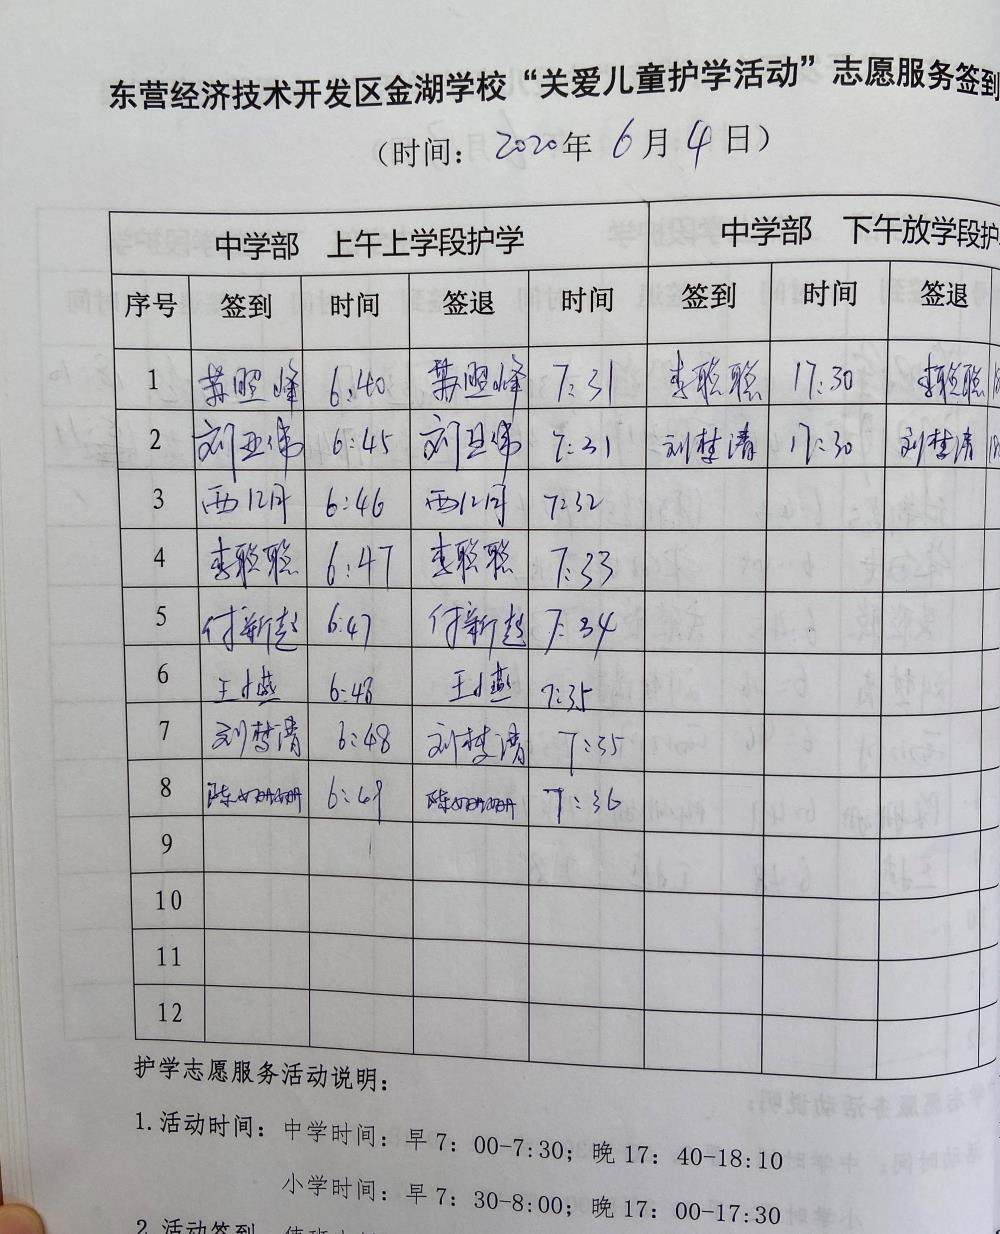 东营经济技术开发区金湖学校“关爱儿童护学活动”志愿服务签到
（时间：2020年 6 月 4 日）
中学部 上午上学段护学 中学部 下午放学段护
序号 签到 时间 签退 时间 签到 时间 签退
1 照峰 6:40 照峰 7:31 李聪聪 17:30 李聪聪
2 刘亚伟 6:45 刘亚伟 7:31 刘梦清 17:30 刘梦清
3 西江月 6:46 西江月 7:32
4 李聪聪 6:47 李聪聪 7:33
5 付新赵 6:47 付新赵 7:34
6 王小燕 6:48 王小燕 7:35
7 刘梦清 6:48 刘梦清 7:35
8 陈姗姗 6:49 陈姗姗 7:36
9
10
11
12
护学志愿服务活动说明：
1.活动时间：中学时间：早 7：00-7:30；晚 17：40-18:10
小学时间：早 7：30-8:00；晚 17：00-17:30
2.活动签到